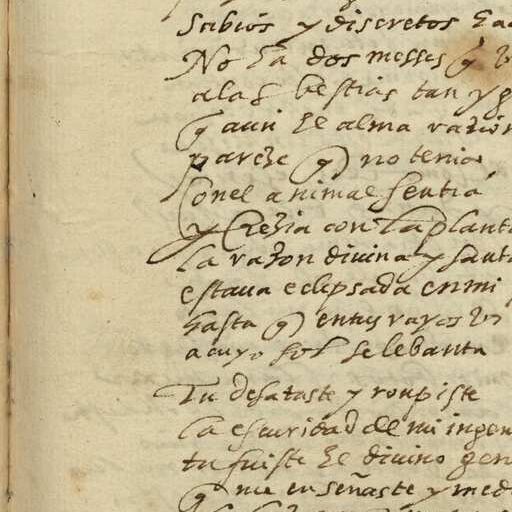 Sabios y discretos ha
No ha dos messes q̃ v
alas bestias tan yg
q̃ aun de alma razon
pareze q̃ no tenia
Con el animal sentia
y Crezia con la planta
la razon divina y santa
estava eclipsada en mi
hasta q̃ en tus rayos vi
a cuyo sol se lebanta
Tu desataste y ronpiste
la escuridad de mi ingen
tu fuiste de divino gen
q̃ me enseñaste y med